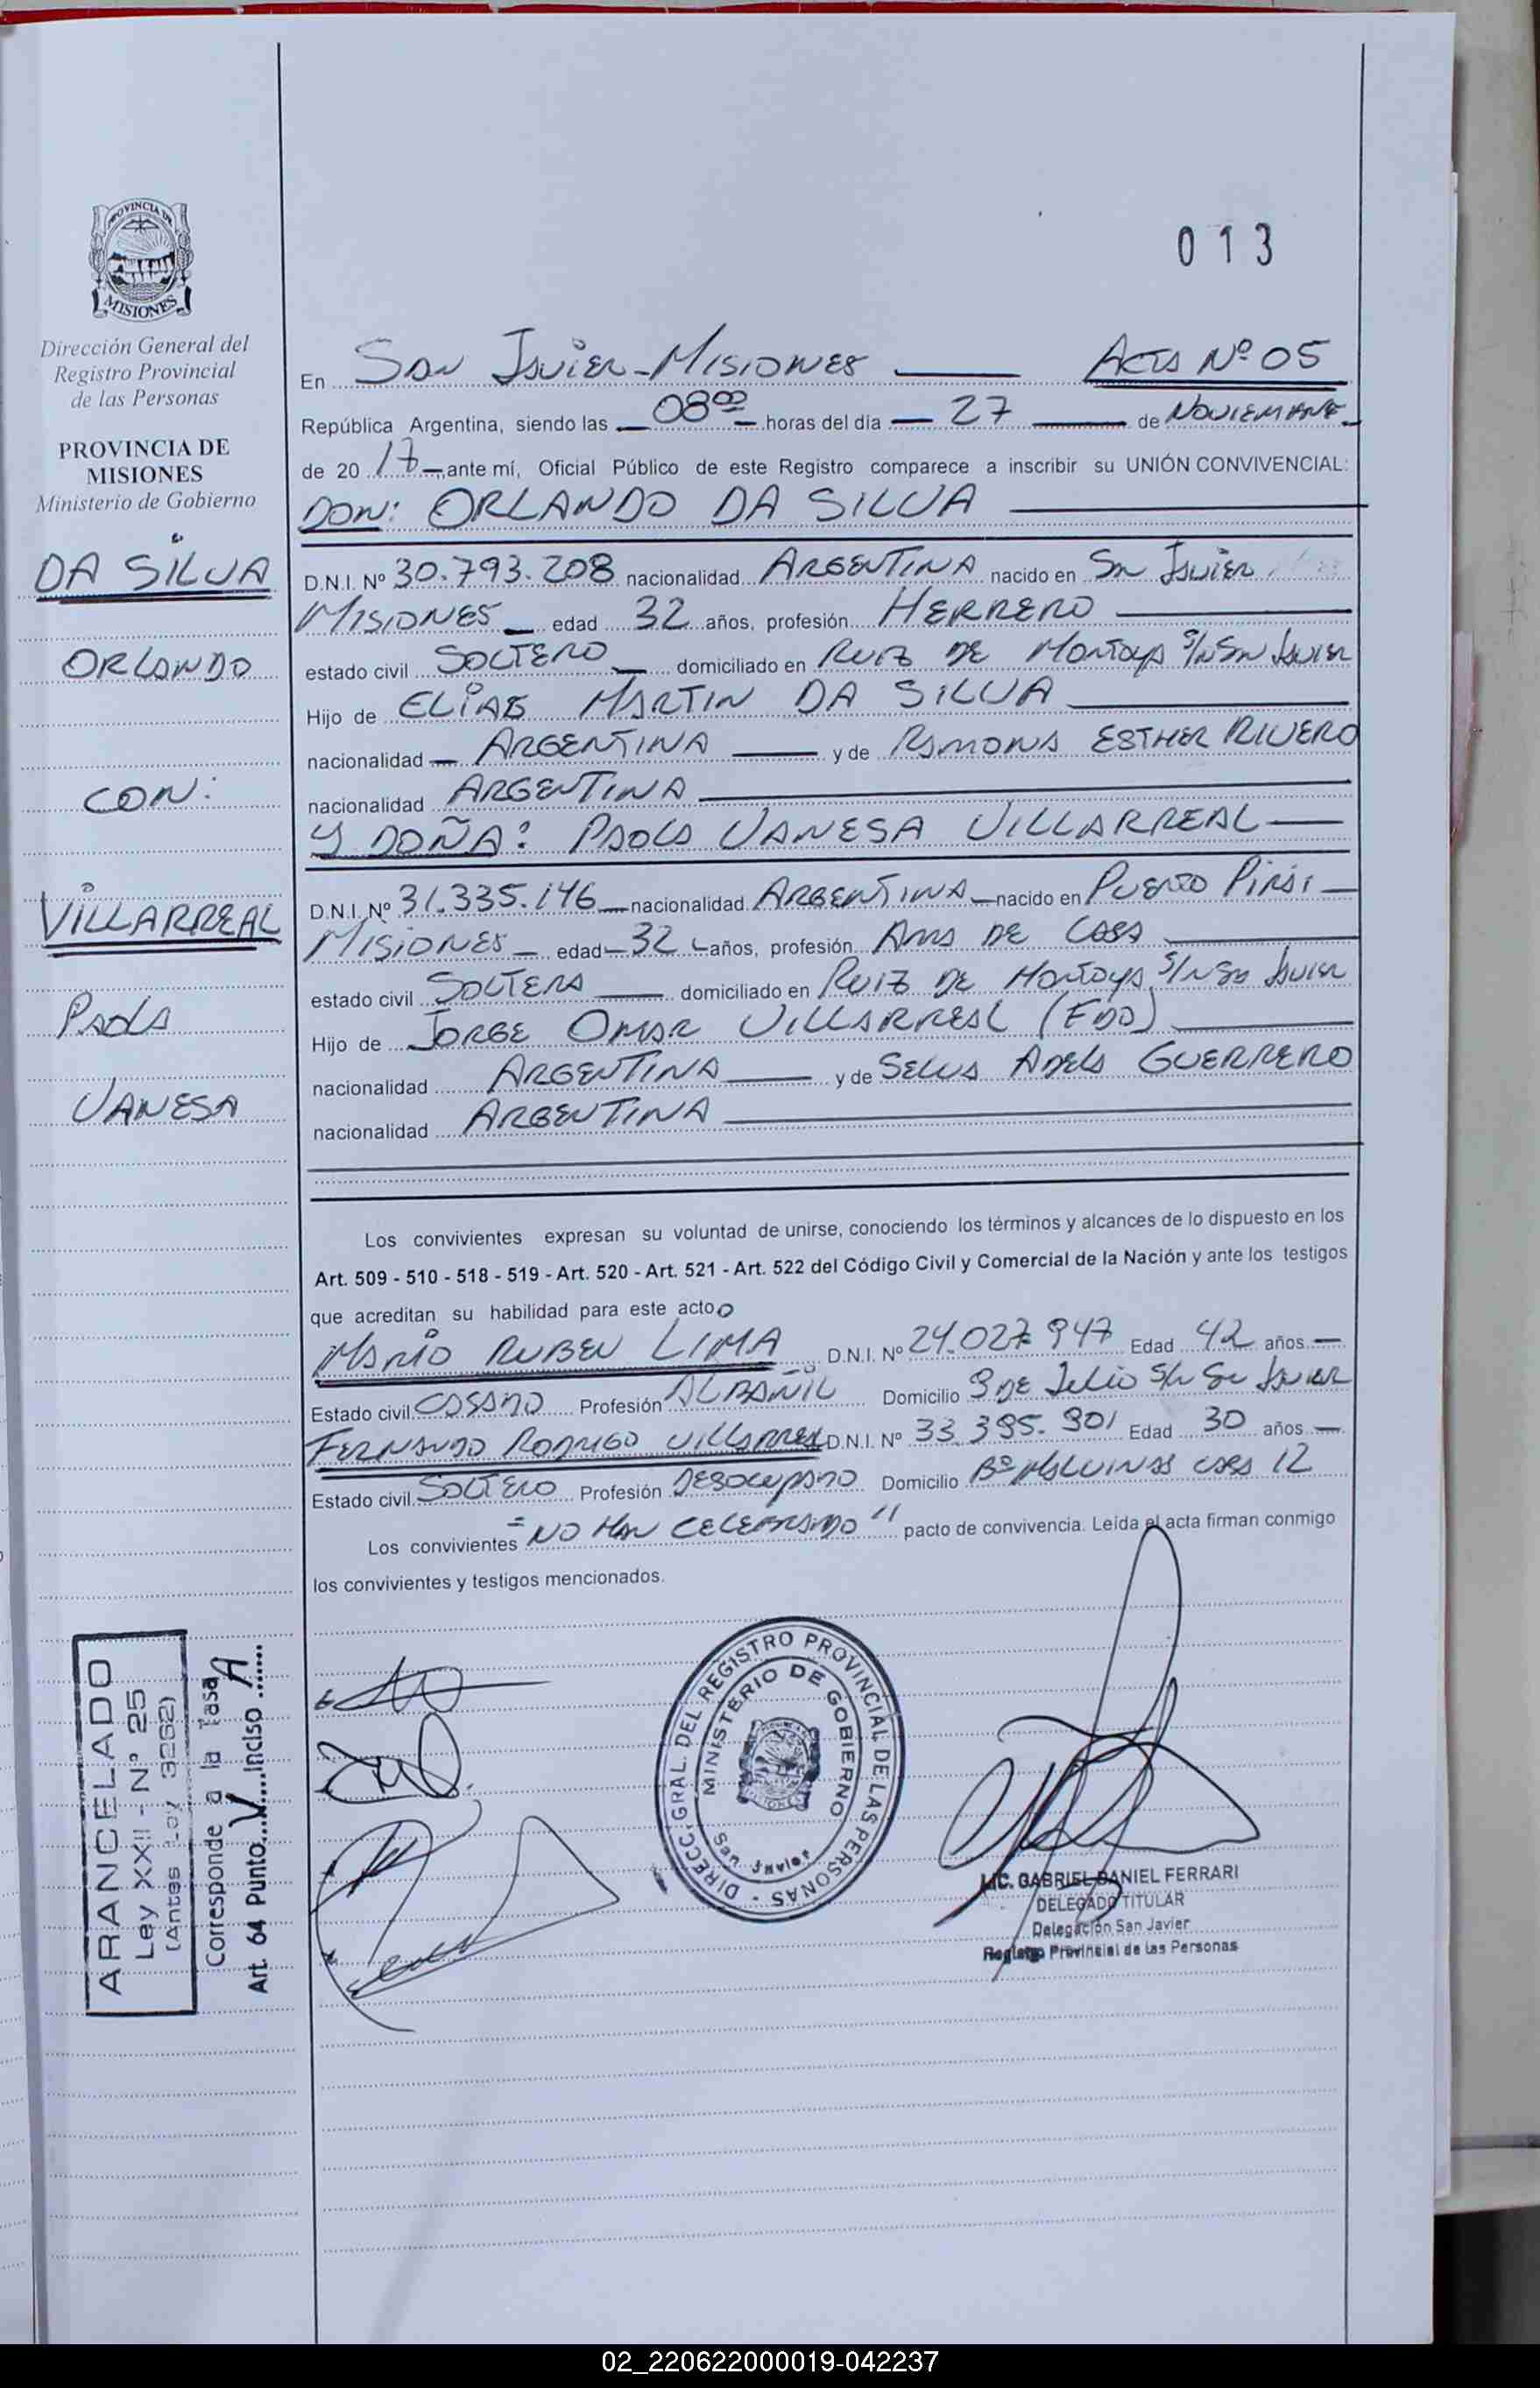 PROVINCIA DE
MISIONES
Dirección General del
Registro Provincial
de las Personas
PROVINCIA DE
MISIONES
Ministerio de Gobierno
DA SILVA
ORLANDO
CON:
VILLARREAL
PAOLA
VANESA
ARANCELADO
Ley XXII - Nº 25
(Antes Ley 3262)
Corresponde a la Tasa A
Art. 64 Punto V Inciso
013
En SAN JAVIER-MISIONES ACTA Nº 05
República Argentina, siendo las 08⁰⁰ horas del día 27 de NOVIEMBRE
de 20 17 ante mí, Oficial Público de este Registro comparece a inscribir su UNIÓN CONVIVENCIAL:
DON: ORLANDO DA SILVA
D.N.I. Nº 30.793.208 nacionalidad ARGENTINA nacido en SAN JAVIER
MISIONES edad 32 años, profesión HERRERO
estado civil SOLTERO domiciliado en RUIZ DE MONTOYA S/N SAN JAVIER
Hijo de ELIAS MARTIN DA SILVA
nacionalidad ARGENTINA y de RAMONA ESTHER RIVERO
nacionalidad ARGENTINA
Y DOÑA: PAOLA VANESA VILLARREAL
D.N.I. Nº 31.335.146 nacionalidad ARGENTINA nacido en PUERTO PIRAY
MISIONES edad 32 años, profesión AMA DE CASA
estado civil SOLTERA domiciliado en RUIZ DE MONTOYA S/N SAN JAVIER
Hijo de JORGE OMAR VILLARREAL (FDO)
nacionalidad ARGENTINA y de SELVA ADELA GUERRERO
nacionalidad ARGENTINA
Los convivientes expresan su voluntad de unirse, conociendo los términos y alcances de lo dispuesto en los
Art. 509 - 510 - 518 - 519 - Art. 520 - Art. 521 - Art. 522 del Código Civil y Comercial de la Nación y ante los testigos
que acreditan su habilidad para este acto
MARIO RUBEN LIMA D.N.I. Nº 24.027.947 Edad 42 años
Estado civil CASADO Profesión ALBAÑIL Domicilio 9 DE JULIO S/N SAN JAVIER
FERNANDO RODRIGO VILLARREAL D.N.I. Nº 33.395.901 Edad 30 años
Estado civil SOLTERO Profesión DESOCUPADO Domicilio Bº MALVINAS CASA 12
Los convivientes "NO HAN CELEBRADO" pacto de convivencia. Leída el acta firman conmigo
los convivientes y testigos mencionados.
DIRECC. GRAL. DEL REGISTRO PROVINCIAL DE LAS PERSONAS
MINISTERIO DE GOBIERNO
San Javier
LIC. GABRIEL DANIEL FERRARI
DELEGADO TITULAR
Delegación San Javier
Registro Provincial de las Personas
02_220622000019-042237